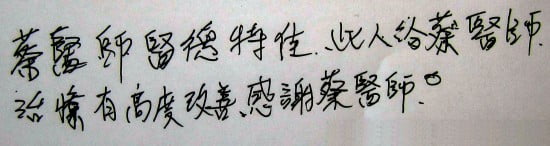 蔡醫師醫德特佳.此人給蔡醫師.
治療有高度改善.感謝蔡醫師.